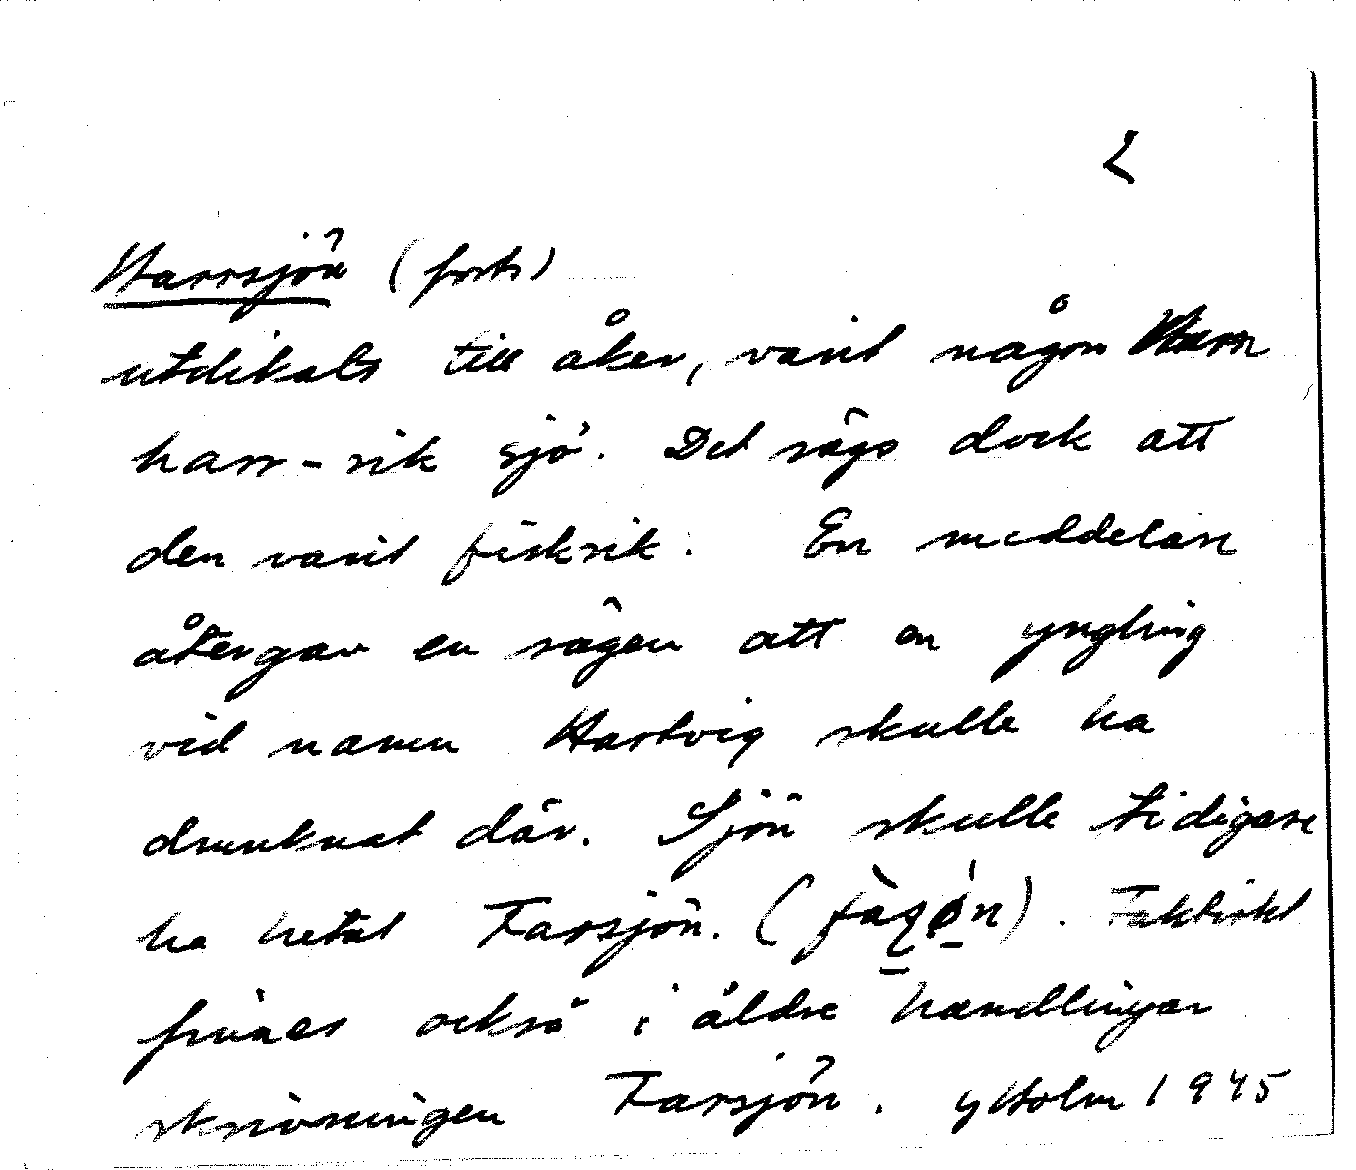 2
Harrsjön (forts)
utdikats till åker, varit någon
harr-rik sjö. Det sägs dock att
den varit fiskrik. En meddelare
återgav en sägen att en yngling
vid namn Hartvig skulle ha
drunknat där. Sjön skulle tidigare
ha hetat Farsjön. (        ). Faktiskt
finnes också i äldre handlingar
skrivningen Farsjön. G Holm 1945